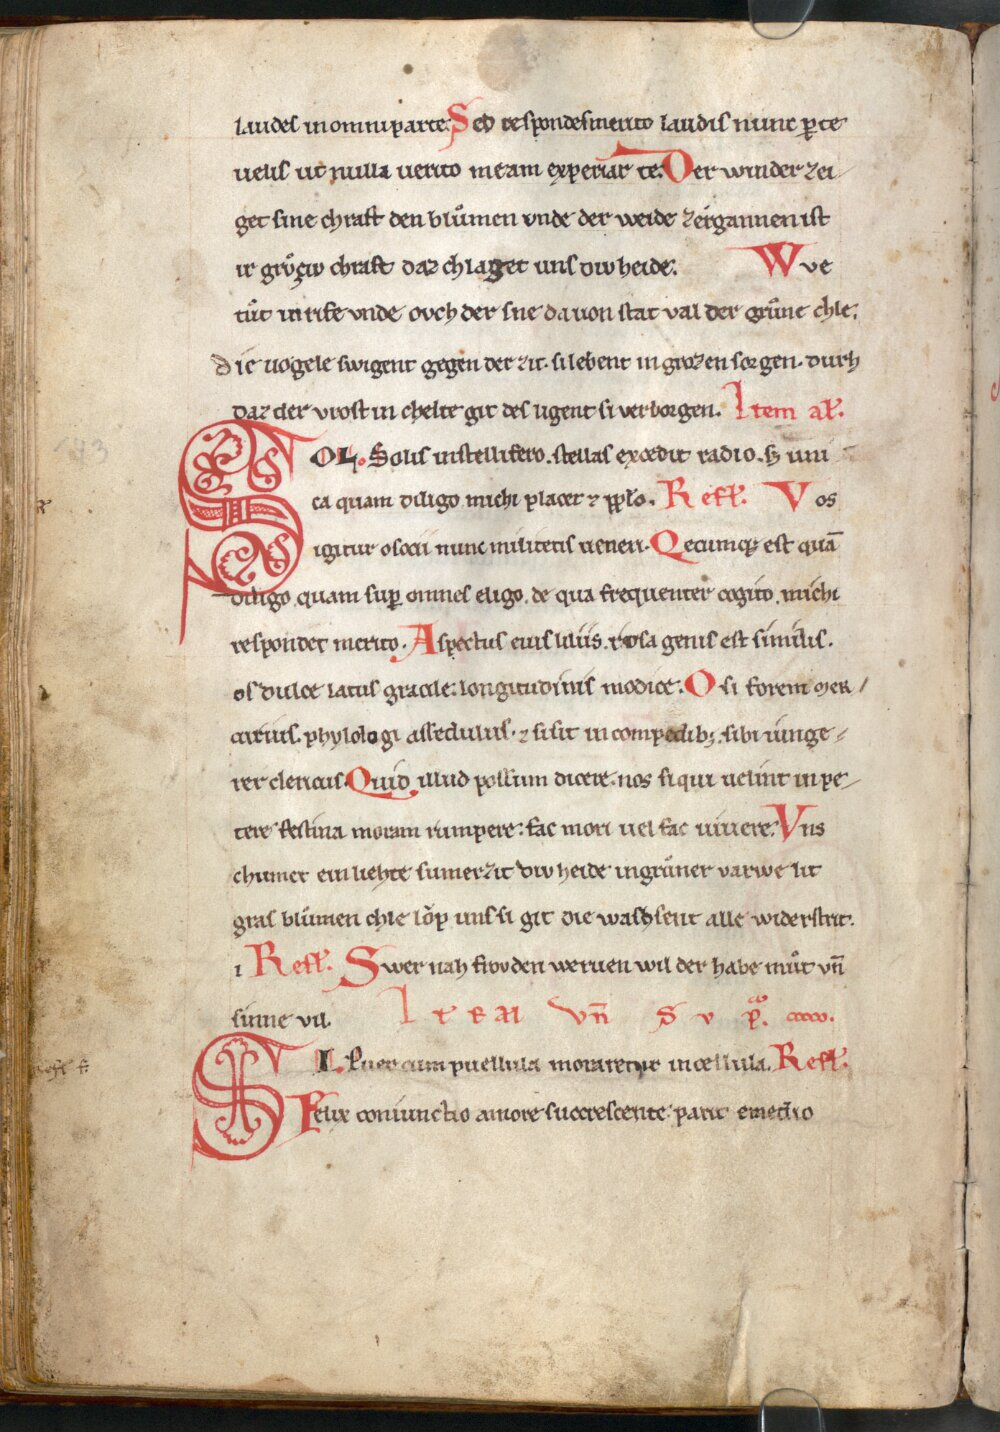 laudes in omni parte. Sed respondes merito laudis nunc ꝑ te
uelis ut nulla uerito meam experiar te. Der winder zei
get sine chraft den blůmen vnde der weide zergannen ist
ir grözziv chraft daz chlaget uns div heide. Wve
tůt in rife vnde ovch der sne da uon stat val der grůne chle.
die uogele swigent gegen der zit. si lebent in grozen sorgen. durh
daz der vrost in chelte git des ligent si verborgen. Item al'.
SOL. Solis in stellifero. stellas excedit radio. sꝫ uni
ca quam diligo michi placet ⁊ ppl'o. Refl'. Vos
igitur o socii nunc militetis ueneri. Qecumqꝫ est quā
diligo. quam suꝑ omnes eligo. de qua frequenter cogito. michi
respondet merito. Aspectus eius liliis. rosa genis est similis.
os dulce latus gracile: longitudinis modice. O si forem mer
curius. phylologi assedulus. ⁊ si sit in compedibꝫ. sibi iunge
rer clericus. Quid illud possum dicere. nos si qui uelint inpe
tere festina moram rumpere: fac mori uel fac uiuere. Vns
chumet ein liehte sumerzit div heide in grůner varwe lit
gras blůmen chle lǒp uns si git die wachsent alle widerstrit.
i Refl'. Swer nah frovden weruen wil der habe můt vn̄
sinne vil. Item vn̄ sv p̄.
SI. Puer cum puellula moraretur in cellula. Refl'.
Felix coniunctio amore succrescente parit e medio